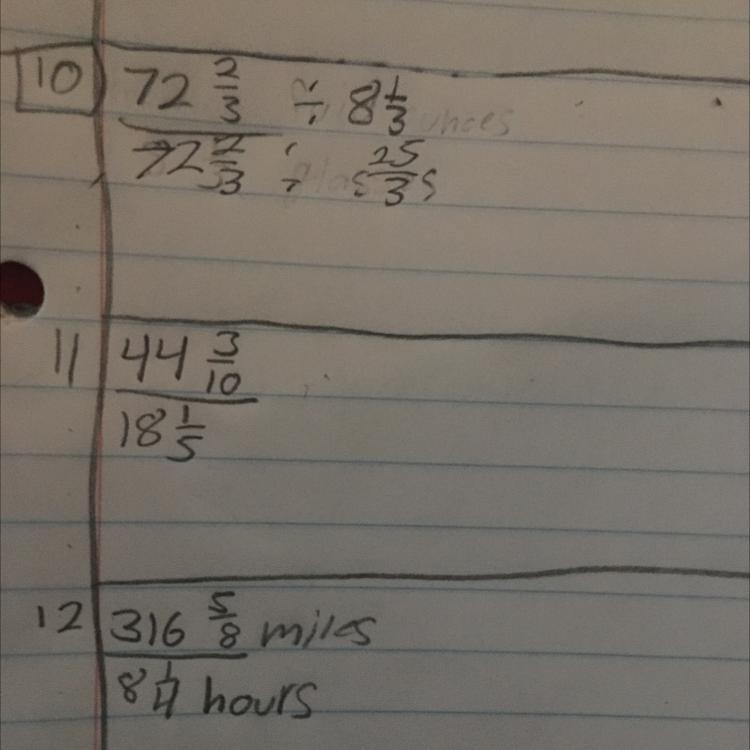 10 72 2/3 ÷ 8 1/3
72 2/3 ÷ 25/3
11 44 3/10
18 1/5
12 316 5/8 miles
8 1/4 hours